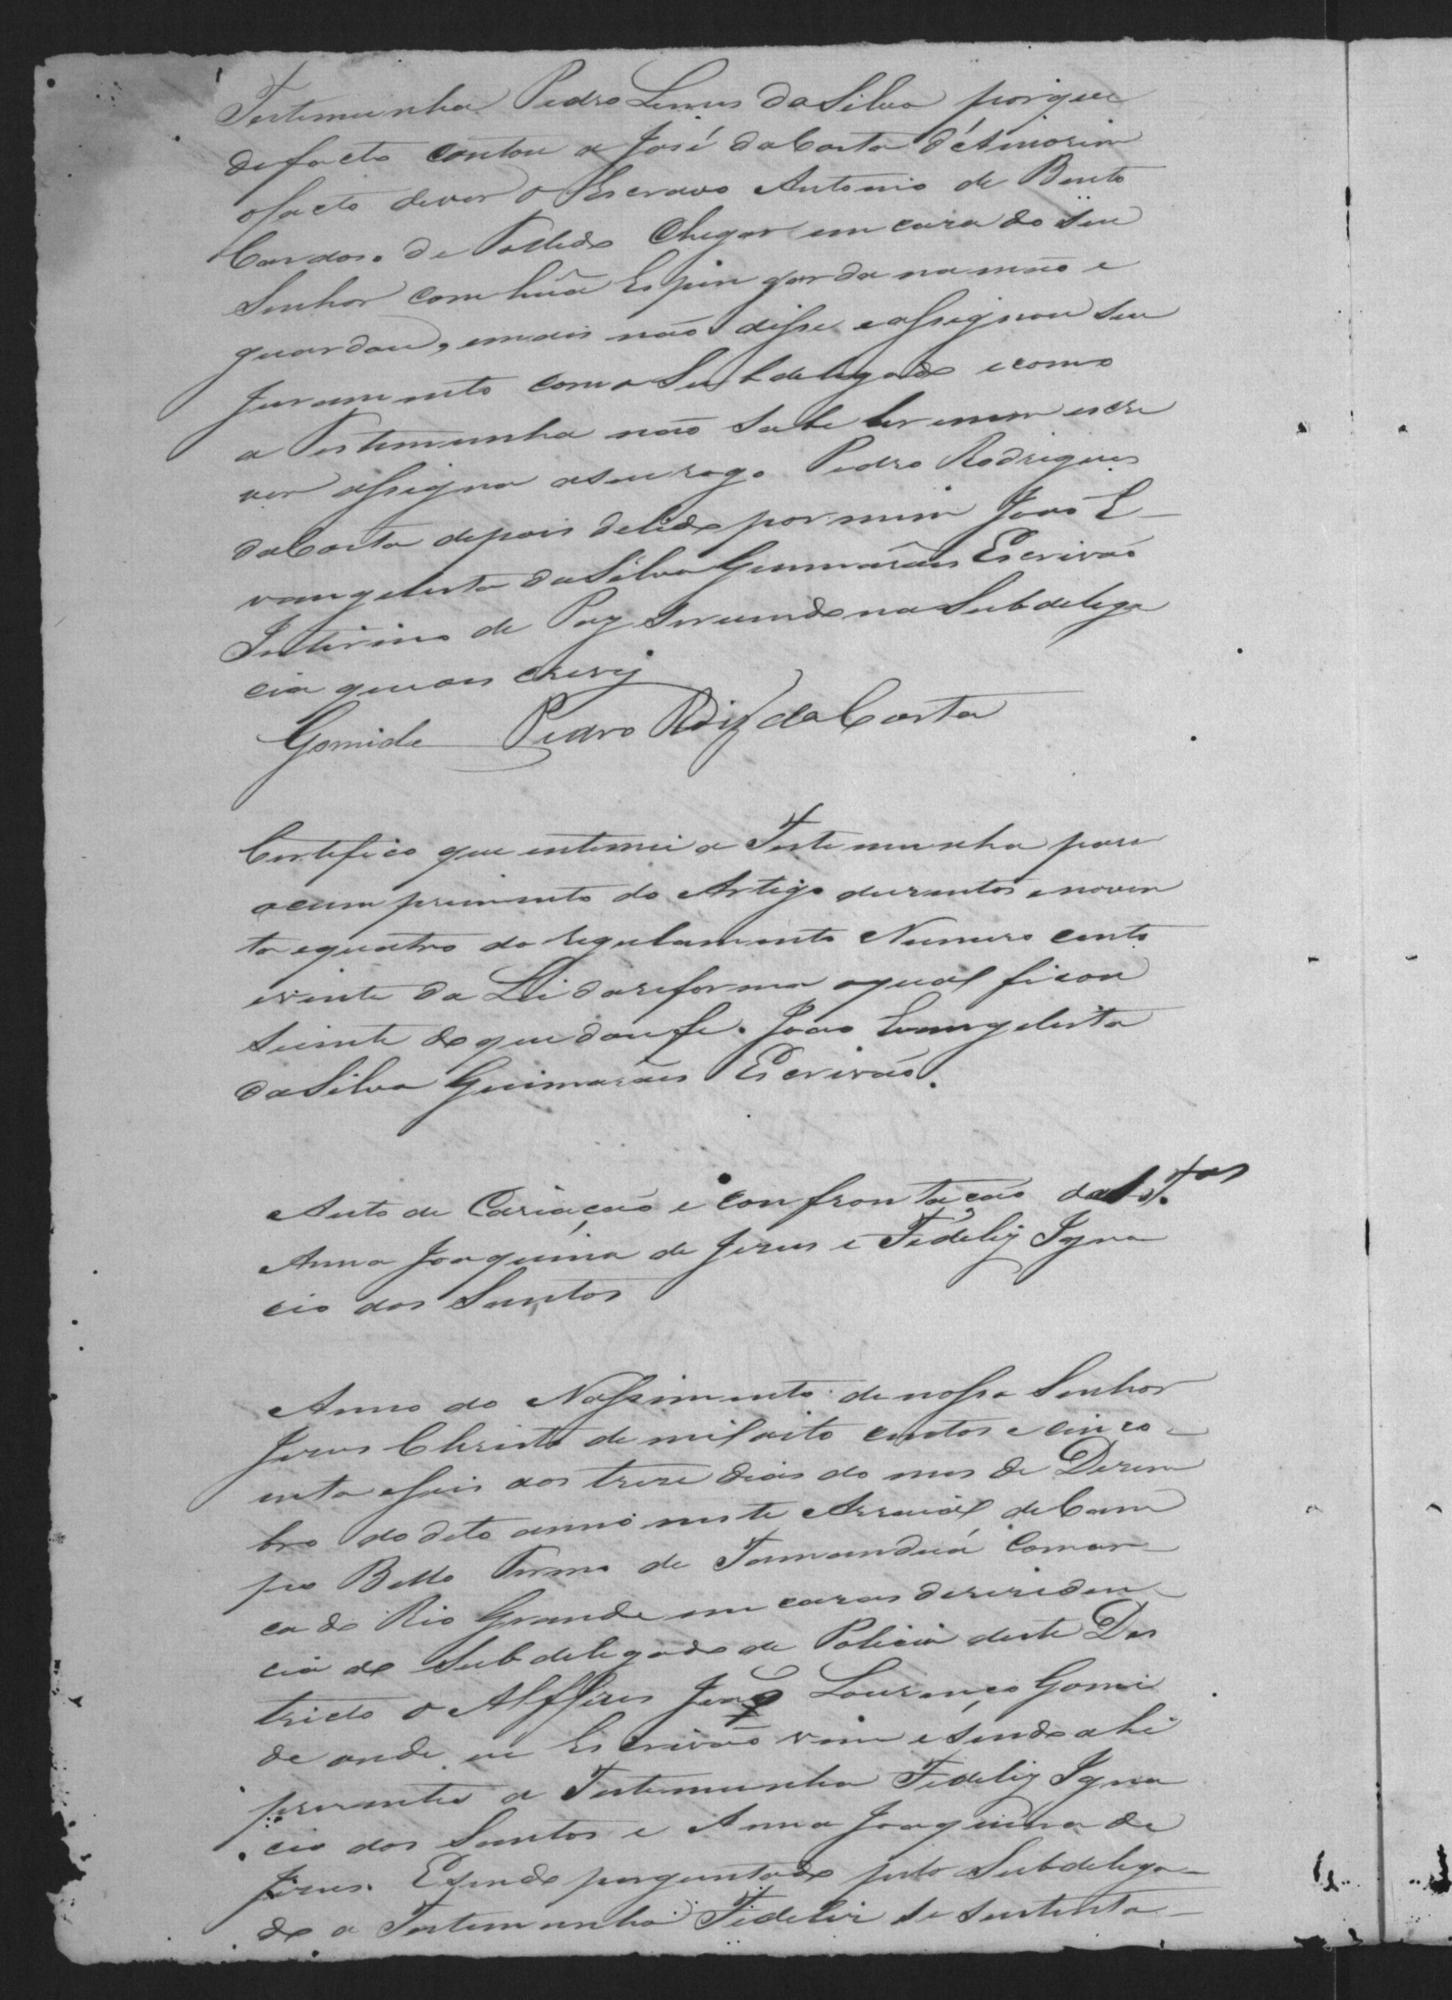 Testemunha Pedro Lemes da Silva porque
defacto contou a José da Costa d'Amorim
ofacto dever o Escravo Antonio de Bento
Cardoso de Tolledo Chegar em casa do seu
Senhor com hũa Espingarda na mão e
guardou, emais não disse eassignou seu
Juramento como Subdelegado ecomo
a Testemunha não sabe ler nem escre
ver assigna aseu rogo Pedro Rodrigues
da Costa depois de lido por mim João E-
vangelista da Silva Guimarães Escrivão
Interino de Paz servindo na Subdelega
cia que oescrevy
Gomide Pedro Roiz da Costa
Certifico que intimei a Testemunha para
ocumprimento do Artigo dusentos enoven
ta equatro do regulamento Numero cento
evinte da Lei dareforma aqual ficou
sciente do que dou fe. João Evangelista
da Silva Guimarães Escrivão.
Auto de Cariação e confrontação das T.as
Anna Joaquina de Jesus e Fidelis Igna
cio dos Santos
Anno do Nassimento de nosso Senhor
Jesus Christo de mil oito centos e cinco-
enta eseis aos trese dias do mes de Desem
bro do dito anno neste Arraial de Cam
po Bello Termo de Tamanduá Comar-
ca do Rio Grande em casas deresiden-
cia do Subdelegado de Policia deste Des
tricto o Alferes Lourenço Gomi
de onde eu Escrivão vim e sendo ahi
presentes a Testemunha Fidelis Igna
cio dos Santos e Anna Joaquina de
Jesus. Esendo perguntado pelo Subdelega-
do a Testemunha Fidelis se sustenta-